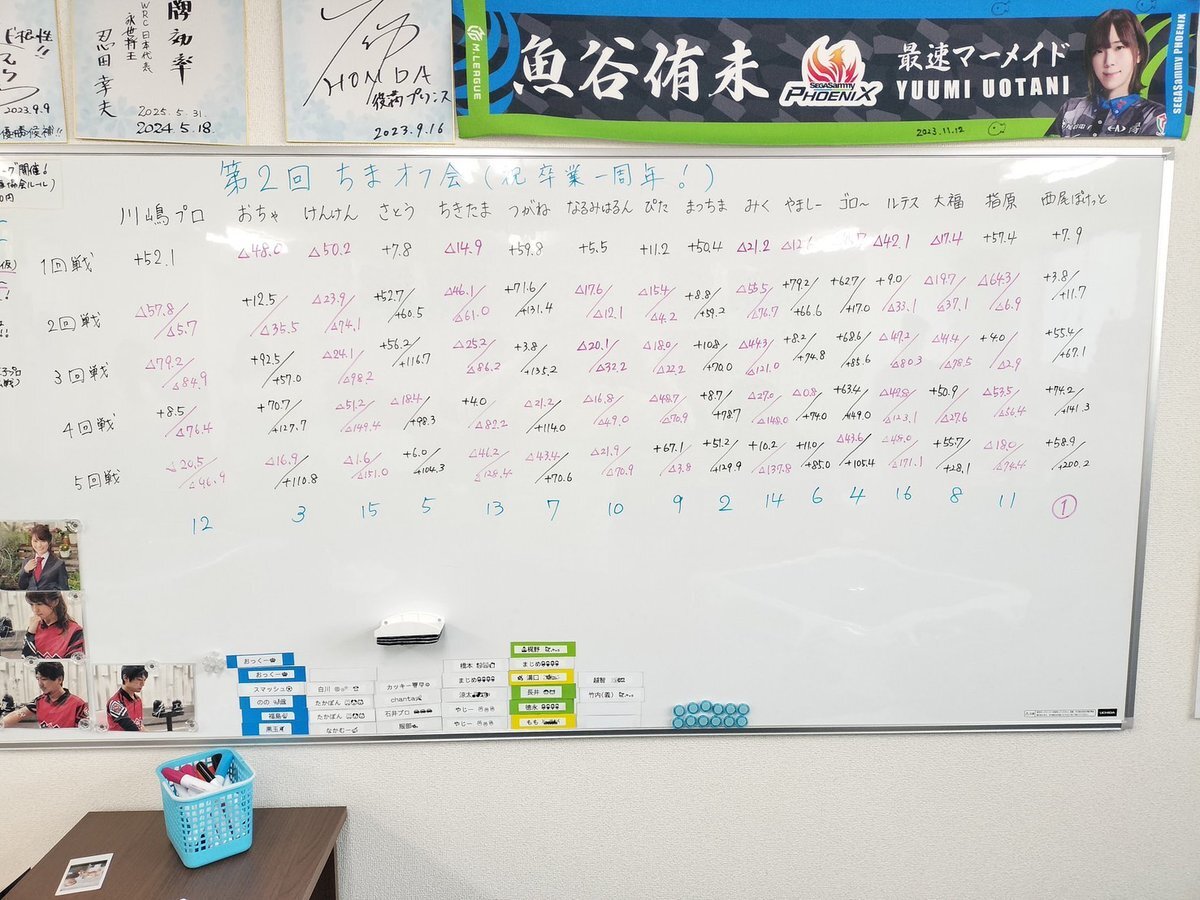 ド根性
2023.9.9
優勝候補!!
牌効率
WRC日本代表
永世将王
忍田幸夫
2025.5.31
2024.5.18.
HONDA
2023.9.16
M.LEAGUE
魚谷侑未
SEGASammy
PHOENIX
最速マーメイド
YUUMI UOTANI
2023.11.12
SEGASammy PHOENIX
第2回 ちまオフ会 (祝 卒業一周年!)
川嶋プロ おちゃ けんけん さとう ちきたま つがね なるみはるん ぴた まっちま みく やましー ゴロ〜 ルテス 大福 指原 西尾ぽけっと
1回戦 +52.1 △48.0 △50.2 +7.8 △14.9 +59.8 +5.5 +11.2 +50.4 △21.2 △42.1 △17.4 +57.4 +7.9
2回戦 △57.8/ +12.5/ △23.9/ +52.7/ △46.1/ +71.6/ △17.6/ △15.4/ +8.8/ △55.5/ +79.2/ +62.7/ +9.0/ △19.7/ △64.3/ +3.8/
△5.7 △35.5 △74.1 +60.5 △61.0 +131.4 △12.1 △4.2 +59.2 △76.7 +66.6 +17.0 △33.1 △37.1 △6.9 +11.7
3回戦 △79.2/ +92.5/ △24.1/ +56.2/ △25.2/ +3.8/ △20.1/ △18.0/ +10.8/ △44.3/ +8.2/ +68.6/ △47.2/ △41.4/ +4.0/ +55.4/
△84.9 +57.0 △98.2 +116.7 △86.2 +135.2 △32.2 △22.2 +70.0 △121.0 +74.8 +85.6 △80.3 △78.5 △2.9 +67.1
4回戦 +8.5/ +70.7/ △51.2/ △18.4/ +4.0/ △21.2/ △16.8/ △48.7/ +8.7/ △27.0/ △0.8/ +63.4/ +50.9/ △53.5/ +74.2/
△76.4 +127.7 △149.4 +98.3 △82.2 +114.0 △49.0 △70.9 +78.7 △148.0 +74.0 +149.0 △123.1 △27.6 △56.4 +141.3
5回戦 △20.5/ △16.9/ △1.6/ +6.0/ △46.2/ △43.4/ △21.9/ +67.1/ +51.2/ +10.2/ +11.0/ △43.6/ △48.0/ +55.7/ △18.0/ +58.9/
△96.9 +110.8 △151.0 +104.3 △128.4 +70.6 △70.9 △3.8 +129.9 △137.8 +85.0 +105.4 △171.1 +28.1 △74.4 +200.2
12 3 15 5 13 7 10 9 2 14 6 4 16 8 11 ①
おっくー
おっくー
スマッシュ
のの
福島
黒玉
白川
たかぽん
たかぽん
なかむー
カッキー
chanta
石井プロ
服部
橋本
まじめ
涼太
やじー
やじー
梶野
まじめ
溝口
長井
徳永
もも
越智
竹内(義)
UCHIDA